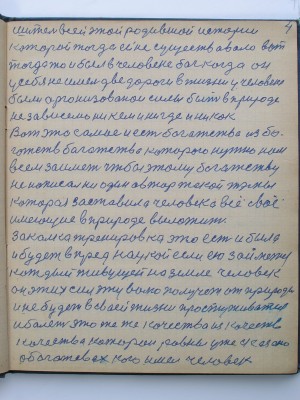 4
шителем всей этой родившой истории
которой тогда ей не существовало вот
тогда то и был в человеке бог когда он
у себя не имел две дороги в жизни у человека
были организованы силы быть в природе
независемо никем и нигде и никак
Вот это самое и есть богатства из бо-
готств богатства которого нужно нам
всем займет чтбы этому богатству
не пописал ни один автор такой
которая заставила человека всё своё
имеющие в природе выложит.
Закалка тренировка это есть и была
и будет в пред наукой если ею займется
каждый живущей на земле человек
он этих сил эту волю получит от природы
и не будет в своей жизни простуживатся
и болет это те же качества из качеств
качества которои равны уже сказано
о богатствах кого имел человек